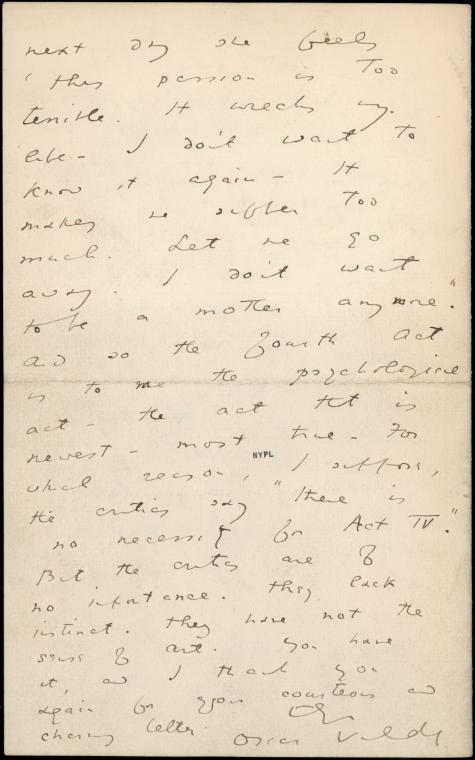 next day she feels
'this passion is too
terrible. It wrecks my
life – I don't want to
know it again – It
makes me suffer too
much. Let me go
away. I don't want
to be a mother anymore."
And so the fourth act
is to me the psychological
act – the act that is
newest – most true – For
which reason, I suppose,
the critics say "there is
no necessity for Act IV."
But the critics are of
no importance. They lack
instinct. They have not the
sense of art. You have
it, and I thank you
again for your courteous and
charming letter.
Oscar Wilde
NYPL